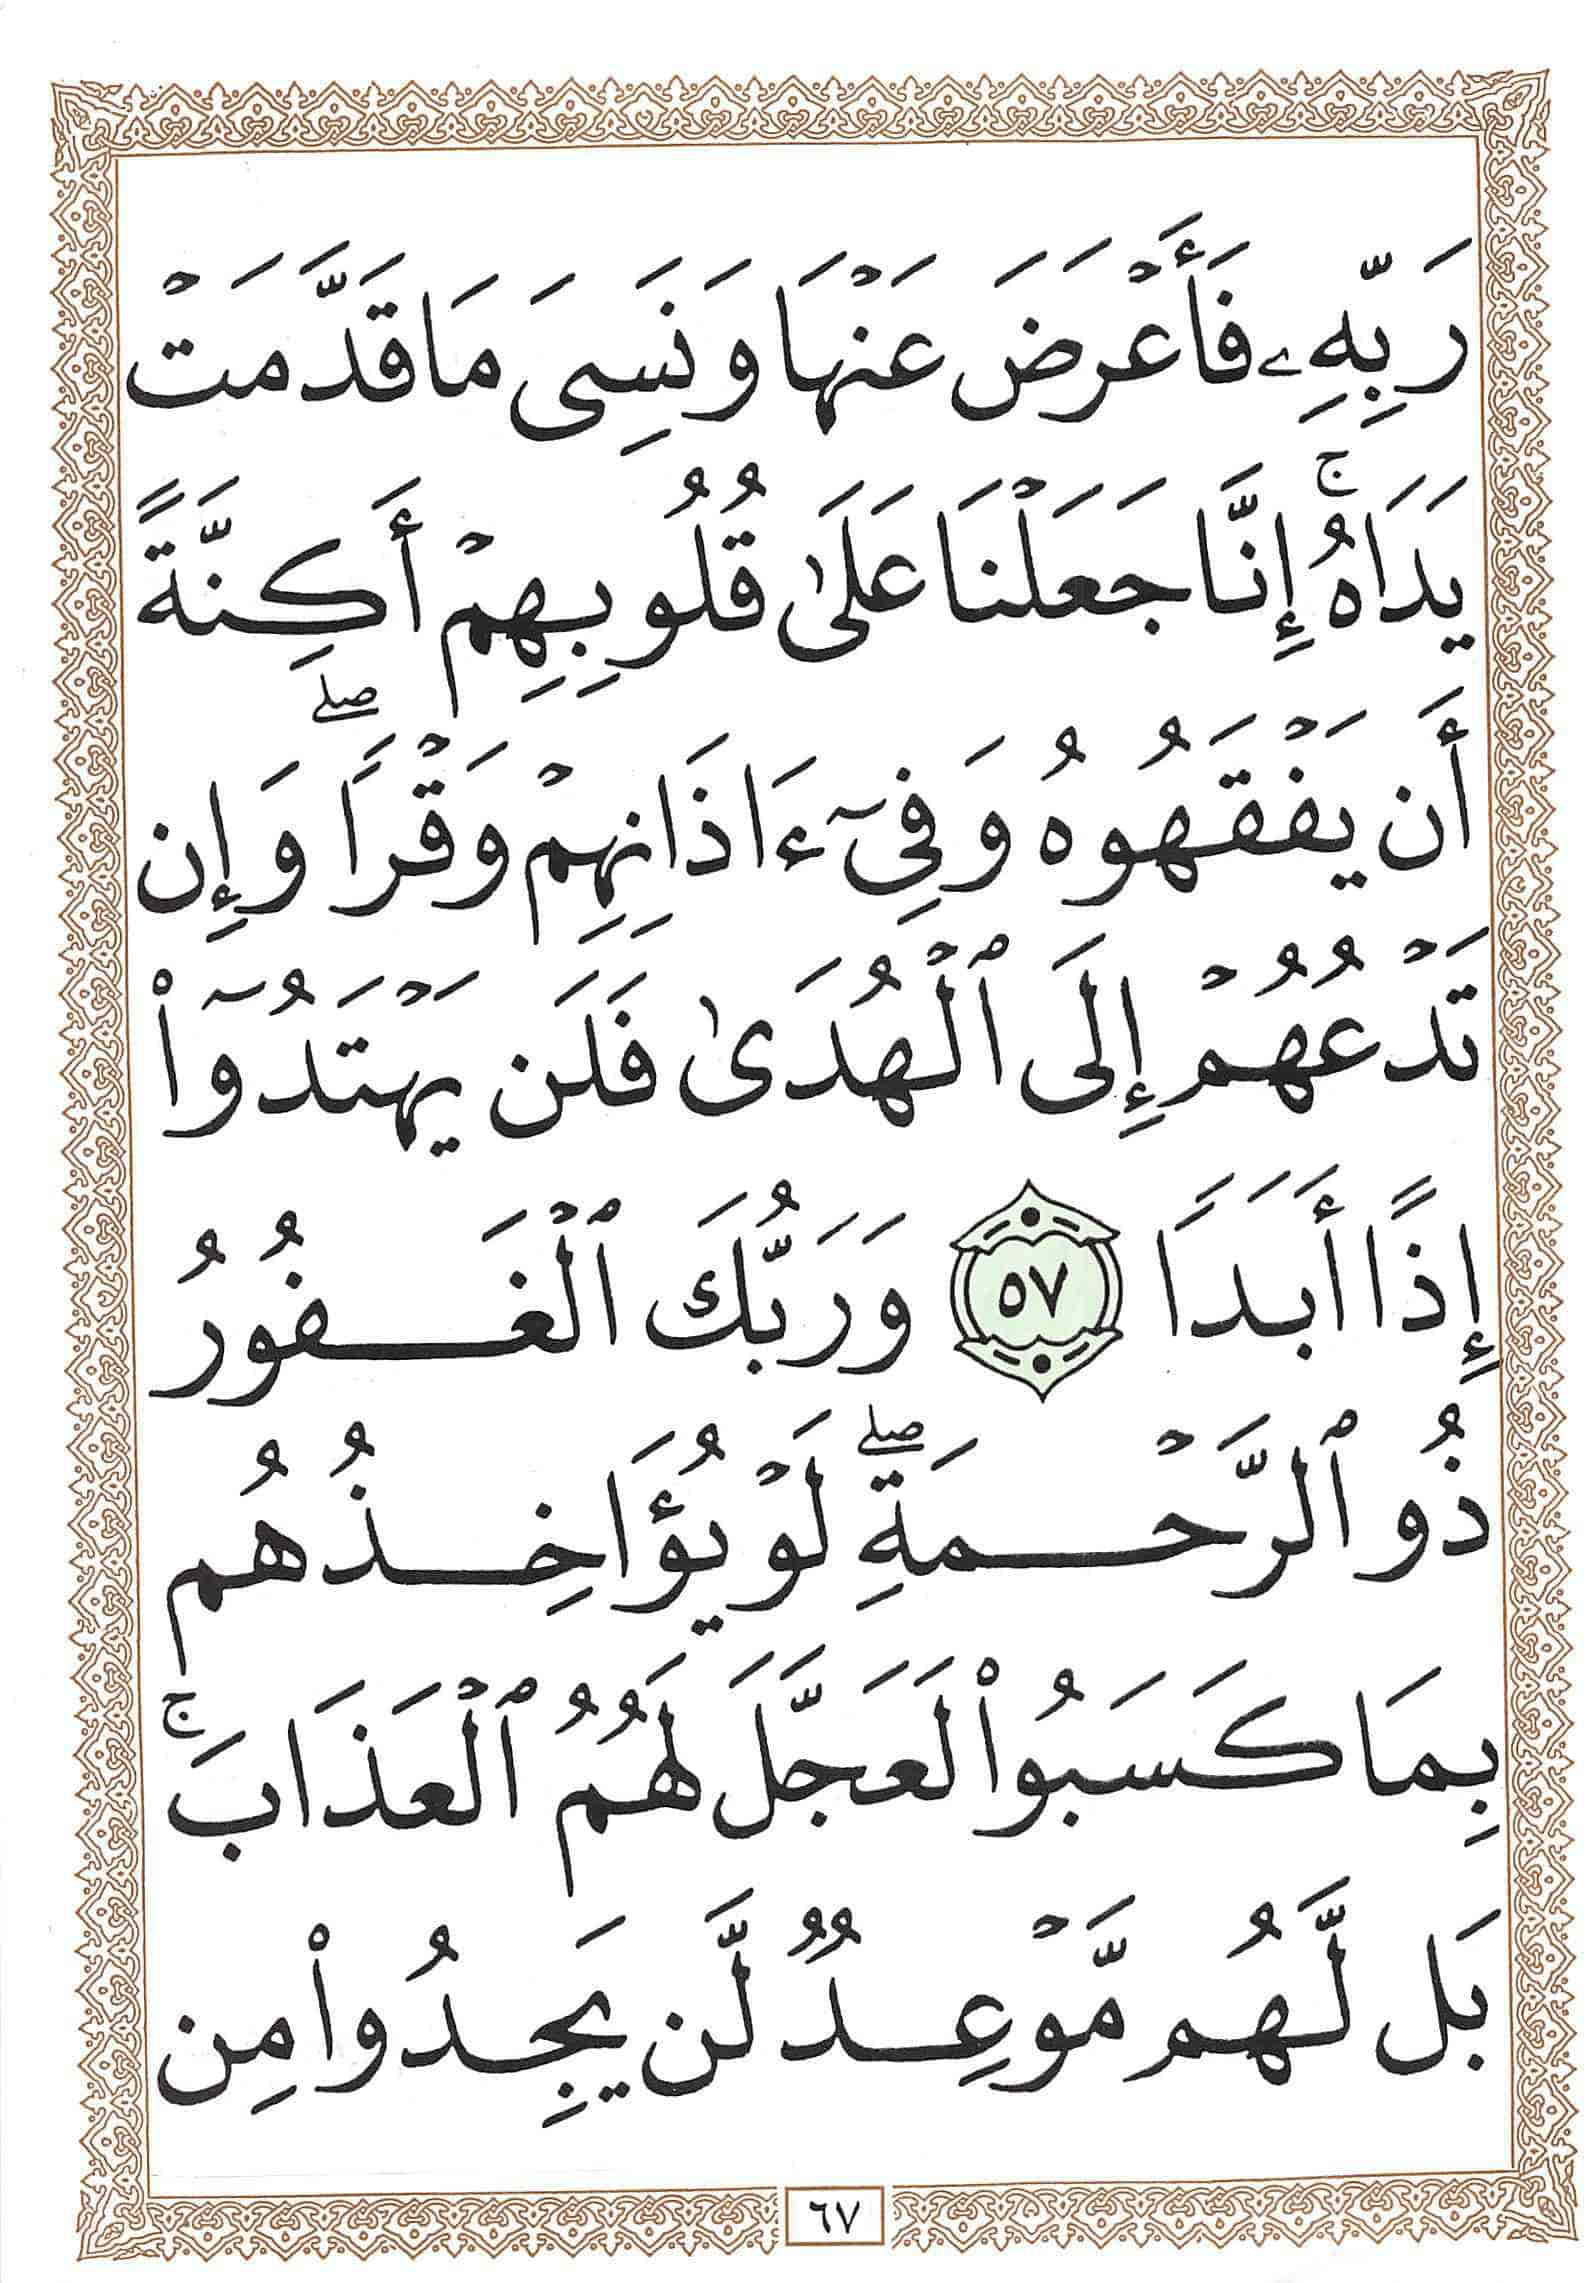 رَبِّهِۦ فَأَعْرَضَ عَنْهَا وَنَسِىَ مَا قَدَّمَتْ
يَدَاهُ ۚ إِنَّا جَعَلْنَا عَلَىٰ قُلُوبِهِمْ أَكِنَّةً
أَن يَفْقَهُوهُ وَفِىٓ ءَاذَانِهِمْ وَقْرًا ۖ وَإِن
تَدْعُهُمْ إِلَى ٱلْهُدَىٰ فَلَن يَهْتَدُوٓا۟
إِذًا أَبَدًا ٥٧ وَرَبُّكَ ٱلْغَفُورُ
ذُو ٱلرَّحْمَةِ ۖ لَوْ يُؤَاخِذُهُم
بِمَا كَسَبُوا۟ لَعَجَّلَ لَهُمُ ٱلْعَذَابَ ۚ
بَل لَّهُم مَّوْعِدٌ لَّن يَجِدُوا۟ مِن
٦٧